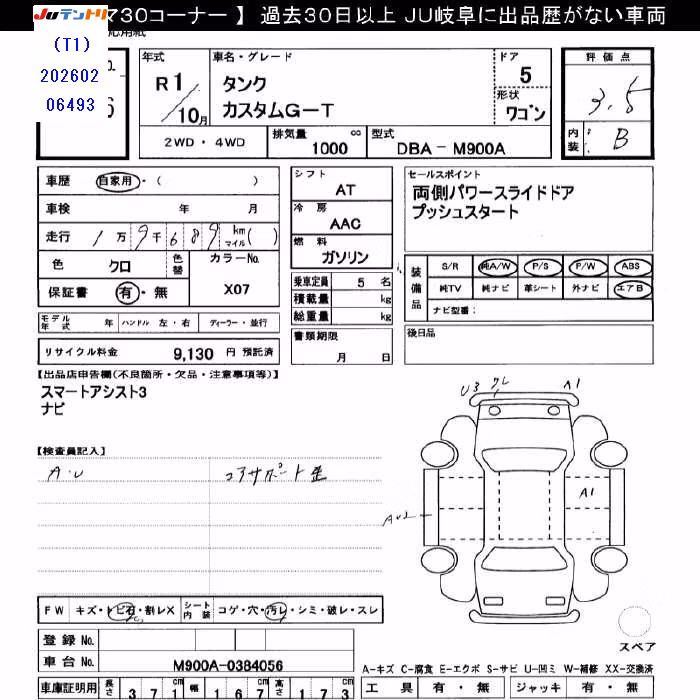 JUテントリ 730コーナー 】 過去30日以上 JU岐阜に出品歴がない車両
(T1)
202602
06493
年式 車名・グレード ドア 評価点
R1/10月 タンク 5 3.5
カスタムG-T 形状 ワゴン 内装 B
2WD・4WD 排気量 1000 cc 型式 DBA-M900A
車歴 自家用・( )
車検 年 月
走行 1万9千689 km マイル ( )
色 クロ 色替 カラーNo. X07
保証書 有・無
モデル年式 年 ハンドル 左・右 ディーラー・並行
リサイクル料金 9,130 円 預託済
シフト AT
冷房 AAC
燃料 ガソリン
乗車定員 5 名
積載量 kg
総重量 kg
書類期限
月 日
セールスポイント
両側パワースライドドア
プッシュスタート
装備品 S/R 純A/W P/S P/W ABS
純TV 純ナビ 革シート 外ナビ エアB
ナビ型番:
後日品
【出品店申告欄(不良箇所・欠品・注意事項等)】
スマートアシスト3
ナビ
【検査員記入】
A・U コアサポート歪
U3 A1
A1
AU2
スペア
FW キズ・トビ石・割レX シート内装 コゲ・穴・汚レ・シミ・破レ・スレ
登録No.
車台No. M900A-0384056
A-キズ C-腐食 E-エクボ S-サビ U-凹ミ W-補修 XX-交換済
車庫証明用 長さ 371cm 幅 167cm 高さ 173cm
工具 有・無 ジャッキ 有・無